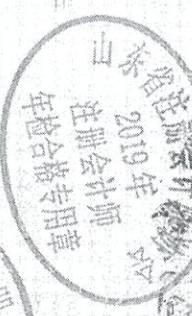 山东省注册会计师
2019 年
注册会计师
年检合格专用章